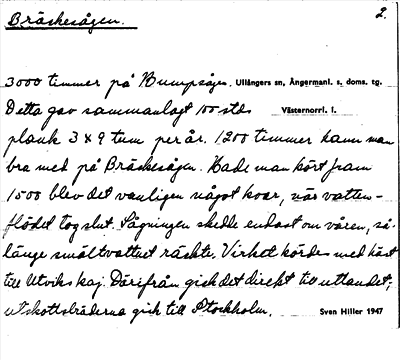 Bräskesågen. 2.
3000 timmer på Bumpsågen. Ullångers sn, Ångermanl. s. doms. tg.
Detta gav sammanlagt 100 stds Västernorrl. l.
plank 3 x 9 tum per år. 1200 timmer kunn man
bra med på Bräskesågen. Hade man kört fram
1500 blev det vanligen något kvar, när vatten-
flödet tog slut. Sågningen skedde endast om våren, så
länge smältvattnet räckte. Virket kördes med häst
till Utviks kaj. Därifrån gick det direkt till utlandet;
utskottsbräderna gick till Stockholm. Sven Hiller 1947